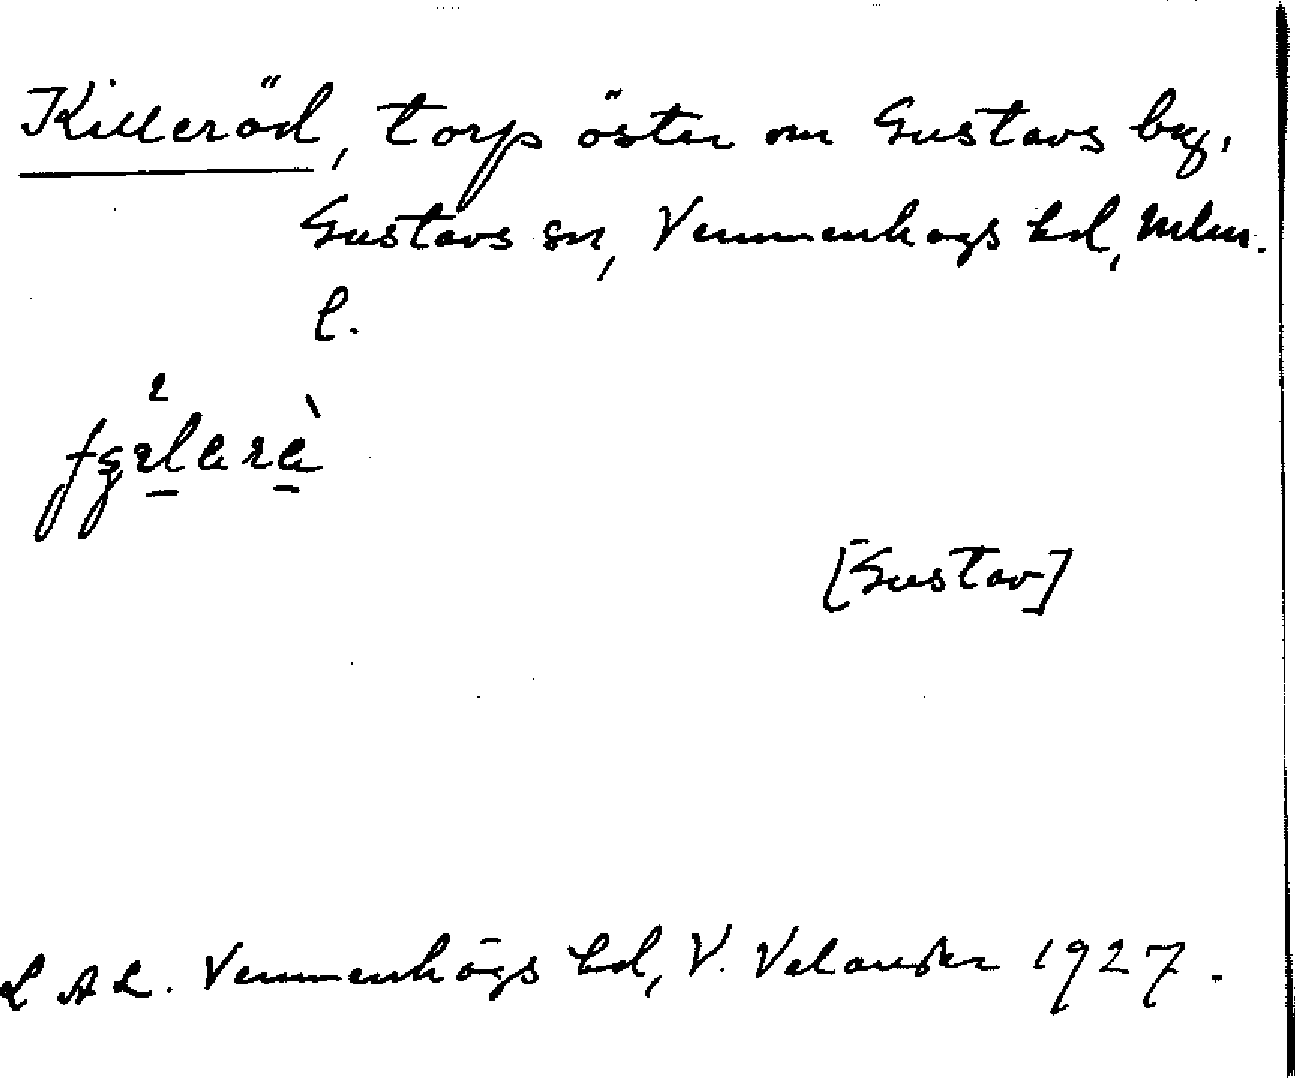 Killeröd, torp öster om Gustavs by,
Gustavs sn, Vemmenhögs hd, Mlm.
l.
[Gustav]
L A L. Vemmenhögs hd, V. Velander 1927.